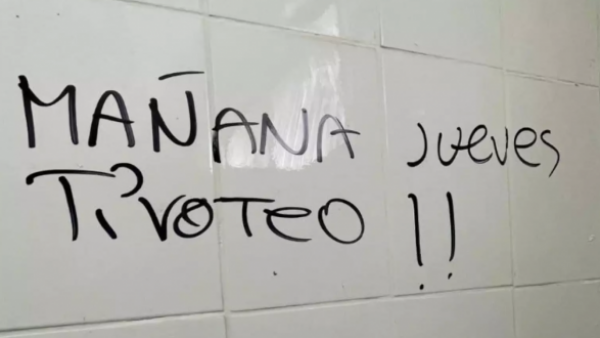 MAÑANA jueves
Tiroteo !!